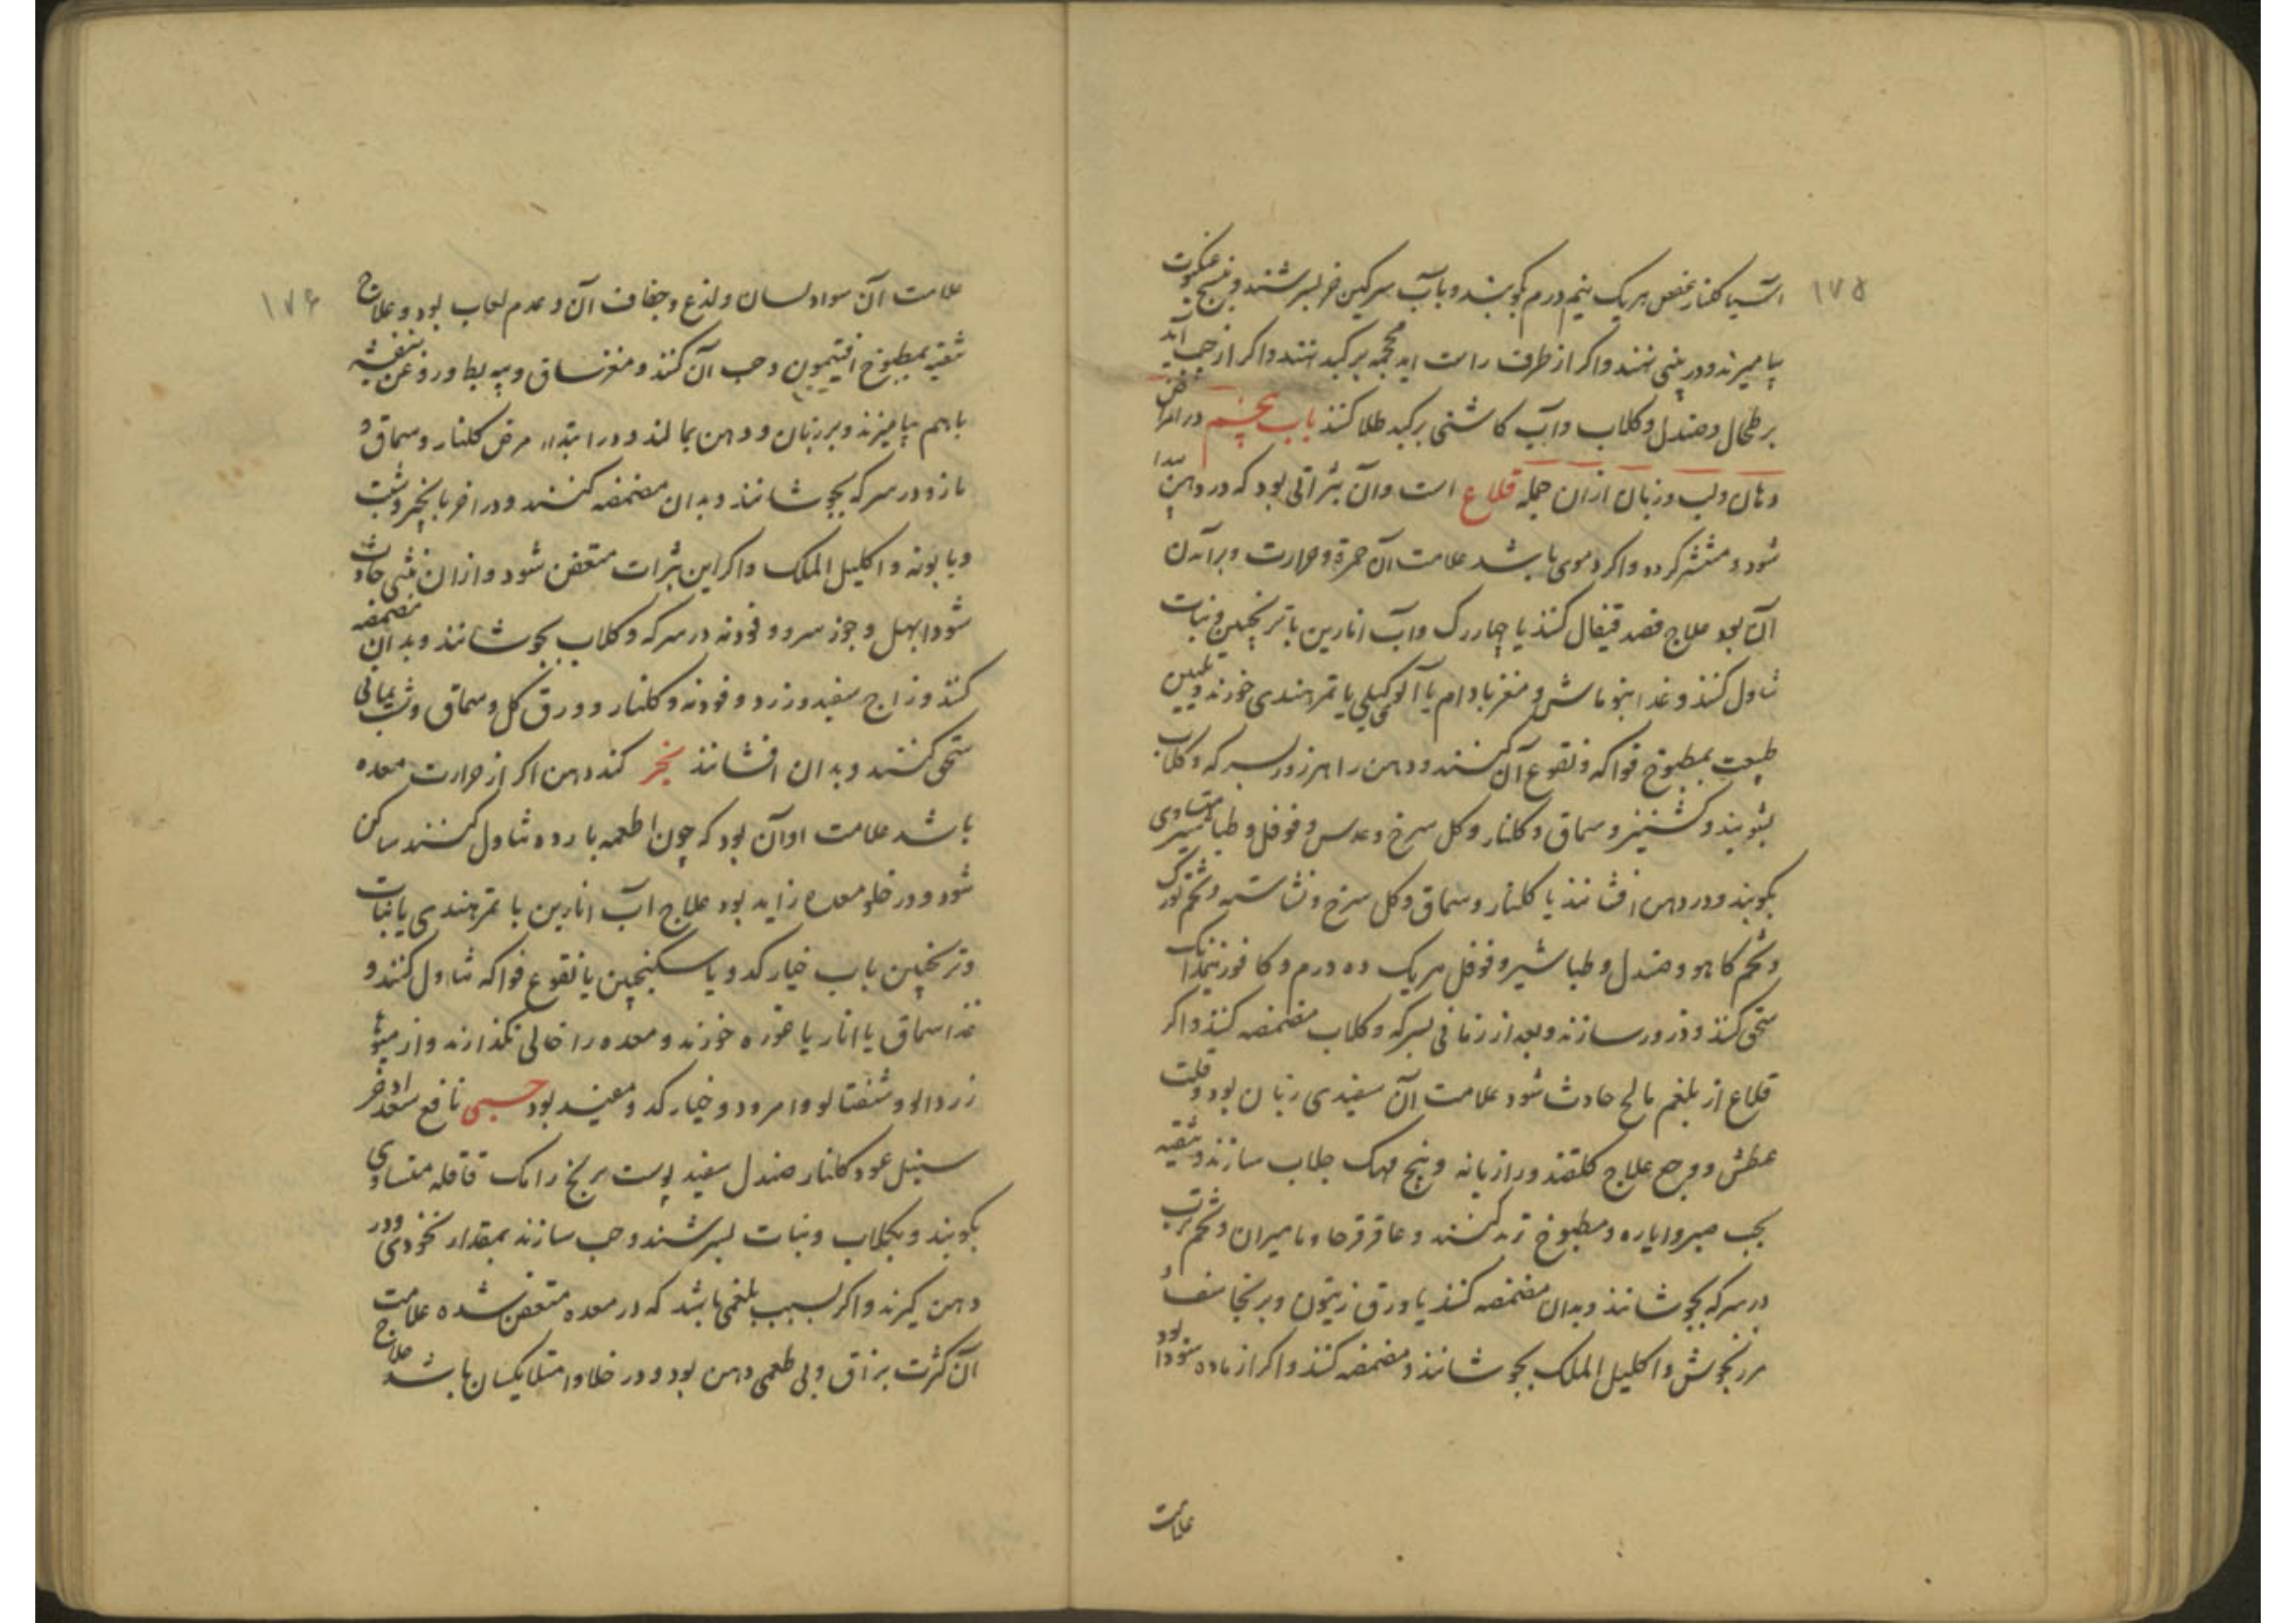 ۱۷۵
آسیا کلنار عفص هریک نیم درم بکوبند و بآب سرکین خر بسرشند و نسج عنکبوت
بیامیزند و در بینی نهند و اکر از طرف راست اید محجمه بر کبد نهند و اکر از چپ آید
بر طحال و صندل و کلاب و آب کاشنی بر کبد طلا کنند باب پنجم در امراض
دهان و لب و زبان ازان جمله قلاع است و آن بثراتی بود که در دهن پیدا
شود و منتشر کردد و اکر دموی باشد علامت آن حمرة و حرارت و برآمدن
آن بود علاج فصد قیفال کنند یا چهاررک و آب انارین با ترنجبین و نبات
تناول کنند و غذا بنوماش و مغز بادام یا آلو کیلی یا تمرهندی خورند و تلیین
طبیعت بمطبوخ فواکه و نقوع آن کنند و دهن را هر روز بسرکه و کلاب
بشویند و کشنیز و سماق و کلنار و کل سرخ و عدس و فوفل و طباشیر متساوی
بکوبند و در دهن افشانند یا کلنار و سماق و کل سرخ و نشاسته و تخم تورک
و تخم کاهو و صندل و طباشیر و فوفل هریک ده درم و کافور نیمدانک
سحق کنند و ذرور سازند و بعد از زمانی بسرکه و کلاب مضمضه کنند و اکر
قلاع از بلغم مالح حادث شود علامت آن سفیدی زبان بود و قلت
عطش و وجع علاج کلقند و رازیانه و بیخ مهک جلاب سازند و تنقیه
بحب صبر و ایاره و مطبوخ تربد کنند و عاقرقرحا و مامیران و تخم ترب
در سرکه بجوشانند و بدان مضمضه کنند یا ورق زیتون و برنجاسف و
مرزنجوش و اکلیل الملک بجوشانند و مضمضه کنند و اکر از ماده سودا بود
علامت
۱۷۶
علامت آن سواد لسان و لذع و جفاف آن و عدم لعاب بود و علاج
تنقیه بمطبوخ افتیمون و حب آن کنند و مغز ساق و پیه بط و روغن بنفشه
باهم بیامیزند و بر زبان و دهن بمالند و در ابتداء مرض کلنار و سماق و
مازو در سرکه بجوشانند و بدان مضمضه کنند و در اخر با انجیر و شبت
و بابونه و اکلیل الملک و اکر این بثرات متعفن شود و ازان نتنی حادث
شود ابهل و جوز سرو و فودنه در سرکه و کلاب بجوشانند و بدان مضمضه
کنند و زاج سفید و زرد و فودنه و کلنار و ورق کل و سماق و شب یمانی
سحق کنند و بدان افشانند بخر کند دهن اکر از حرارت معده
باشد علامت او آن بود که چون اطعمه بارده تناول کنند ساکن
شود و در خلو معده زاید بود علاج آب انارین با تمرهندی یا نبات
و ترنجبین باب خیار کدو یا سکنجبین یا نقوع فواکه تناول کنند و
غذا سماق یا انار یا غوره خورند و معده را خالی نکذارند و از میوها
زردالو و شفتالو و امرود و خیار کدو مفید بود حبی نافع سعد اذخر
سنبل عود کلنار صندل سفید پوست ترنج رامک قاقله متساوی
بکوبند و بکلاب و نبات بسرشند و حب سازند بمقدار نخودی و در
دهن کیرند و اکر بسبب بلغمی باشد که در معده متعفن شده علامت
آن کثرت بزاق و بی طعمی دهن بود و در خلا و امتلا یکسان باشد علاج